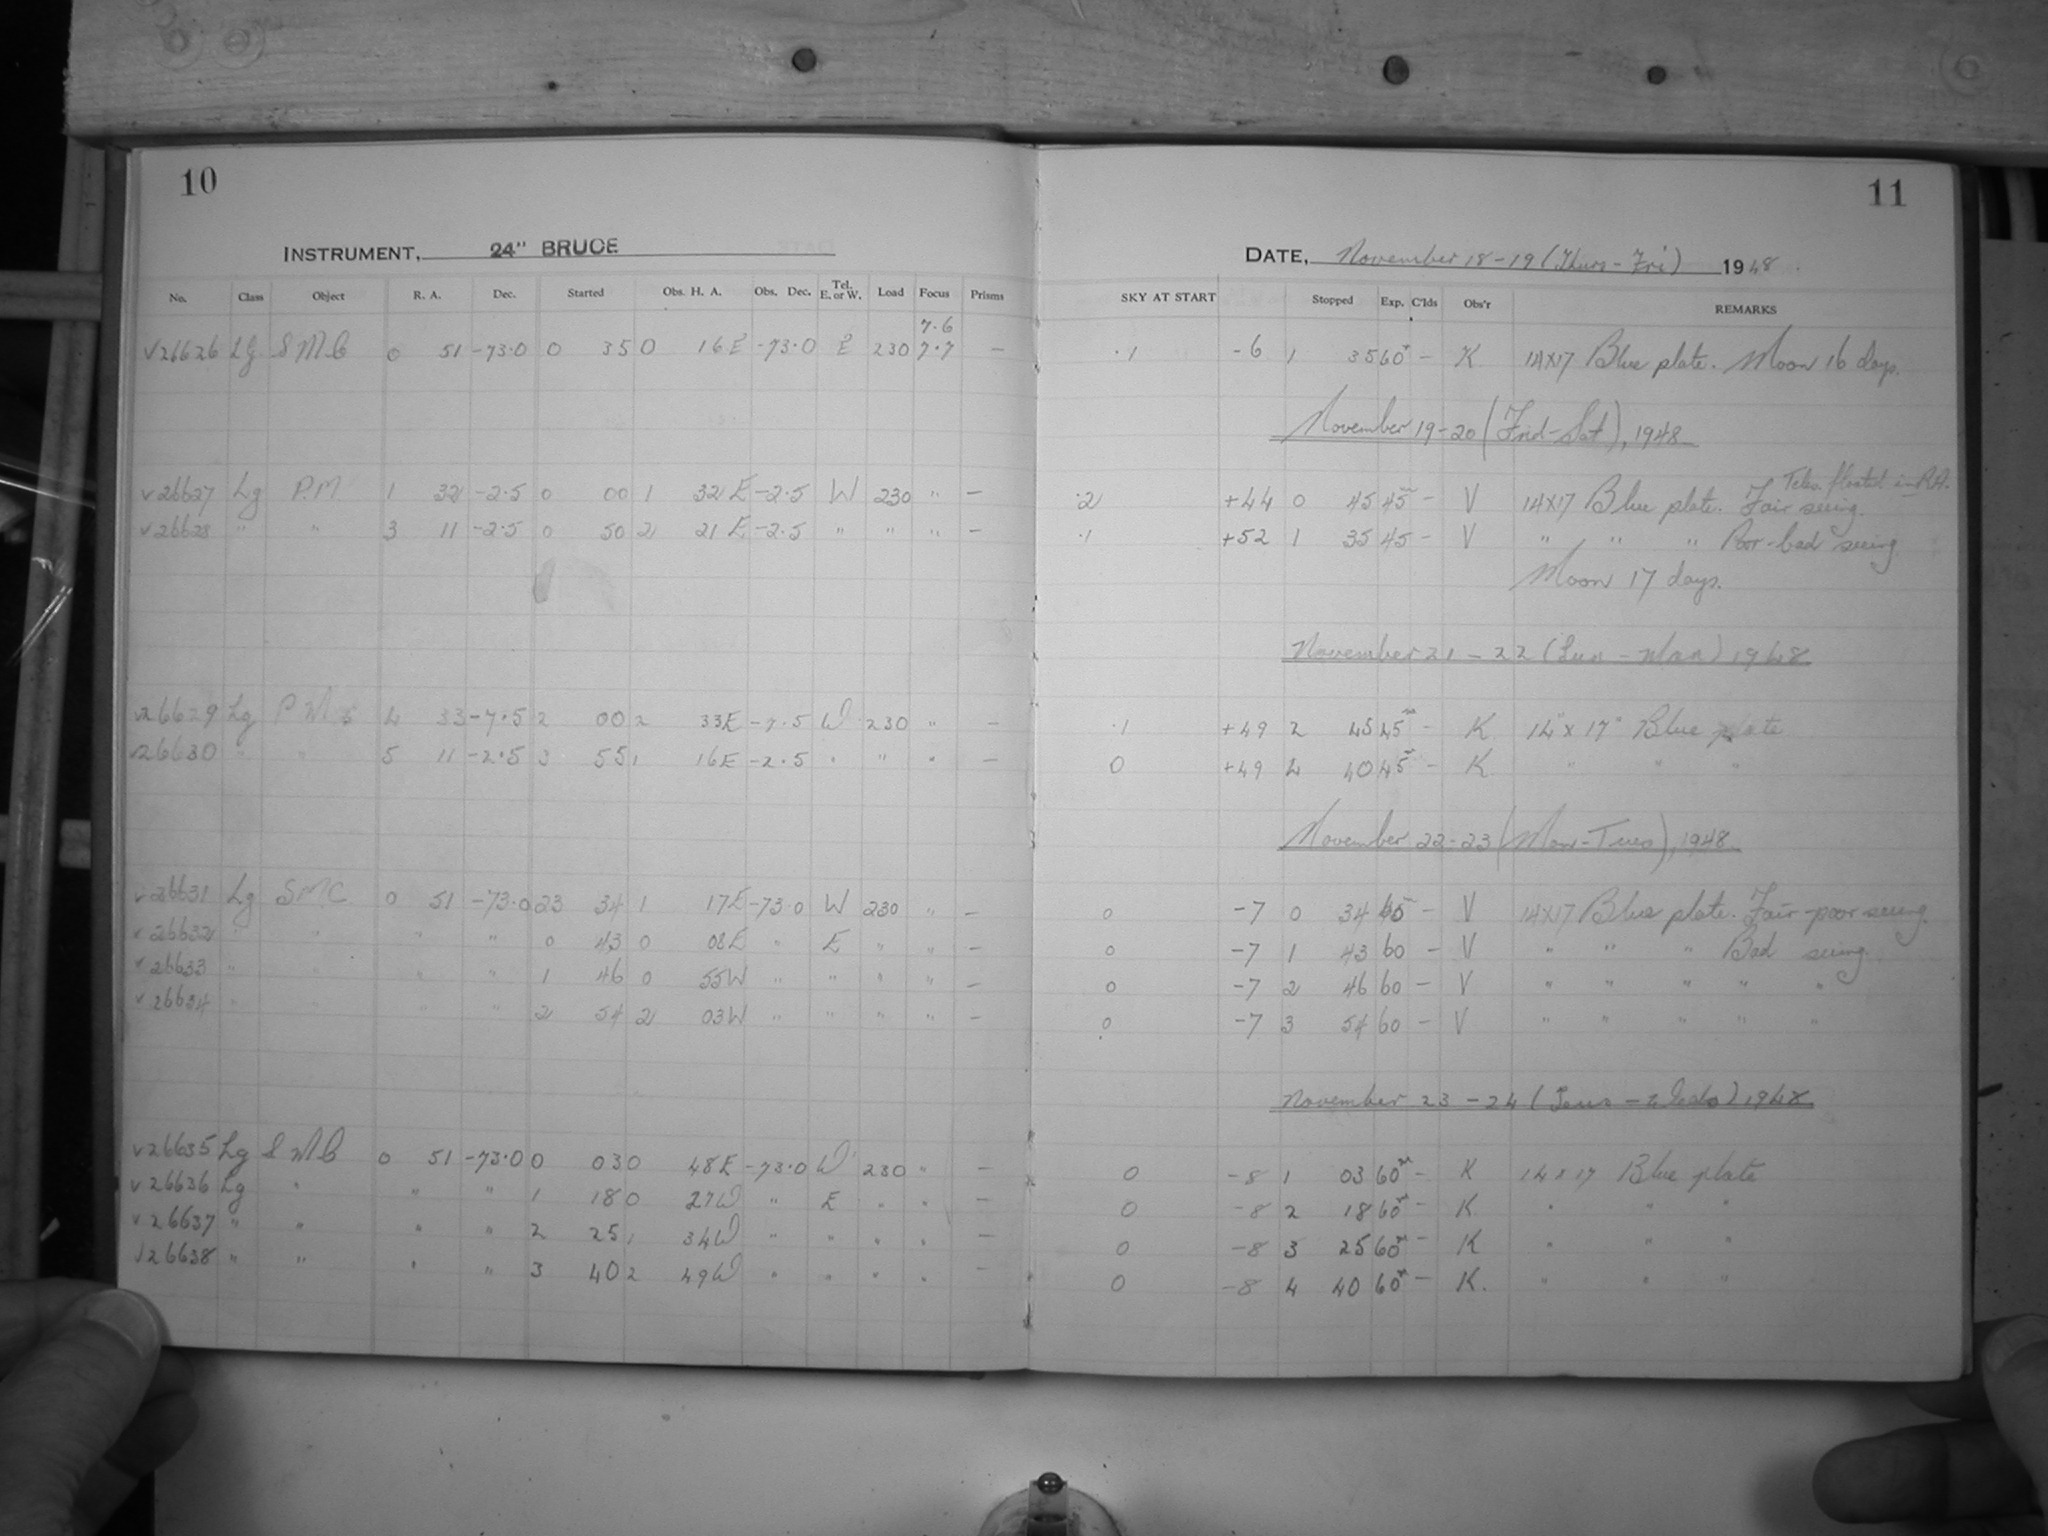 10
INSTRUMENT, 24" BRUCE
No. Class Object R. A. Dec. Started Obs. H. A. Obs. Dec. Tel. E. or W. Load Focus Prisms
7.6
√26626 Lg SMC 0 51 -73.0 0 35 0 16E -73.0 E 230 7.7 —
v26627 Lg P.M. 1 32 -2.5 0 00 1 32E -2.5 W 230 " —
v26628 " " 3 11 -2.5 0 50 2 21E -2.5 " " " —
v26629 Lg 4 33 -7.5 2 00 2 33E -7.5 W 230 " —
v26630 " " 5 11 -2.5 3 55 1 16E -2.5 " " " —
v26631 Lg SMC 0 51 -73.0 23 34 1 17E -73.0 W 230 " —
v26632 " " " " 0 43 0 08E " E " " —
v26633 " " " " 1 46 0 55W " " " " —
v26634 " " " " 2 54 2 03W " " " " —
v26635 Lg SMC 0 51 -73.0 0 03 0 48E -73.0 W 230 " —
v26636 Lg " " " 1 18 0 27W " E " " —
v26637 " " " " 2 25 1 34W " " " " —
√26638 " " " " 3 40 2 49W " " " " —
11
DATE, November 18-19 (Thurs-Fri) 1948.
SKY AT START Stopped Exp. C'lds Obs'r REMARKS
.1 -6 1 35 60 — K 14x17 Blue plate. Moon 16 days.
November 19-20 (Frid-Sat), 1948
Teles. floated in R.A.
.2 +44 0 45 45m — V 14x17 Blue plate. Fair seeing.
.1 +52 1 35 45 — V " " " Poor-bad seeing
Moon 17 days.
November 21-22 (Sun-Mon) 1948
.1 +49 2 45 45m — K 14" x 17" Blue plate
0 +49 4 40 45m — K " " "
November 22-23 (Mon-Tues), 1948
0 -7 0 34 60m — V 14x17 Blue plate. Fair-poor seeing.
0 -7 1 43 60 — V " " " Bad seeing.
0 -7 2 46 60 — V " " " " "
0 -7 3 54 60 — V " " " " "
November 23-24 (Tues-Weds) 1948
0 -8 1 03 60m — K 14x17 Blue plate
0 -8 2 18 60m — K " " "
0 -8 3 25 60m — K " " "
0 -8 4 40 60m — K. " " "